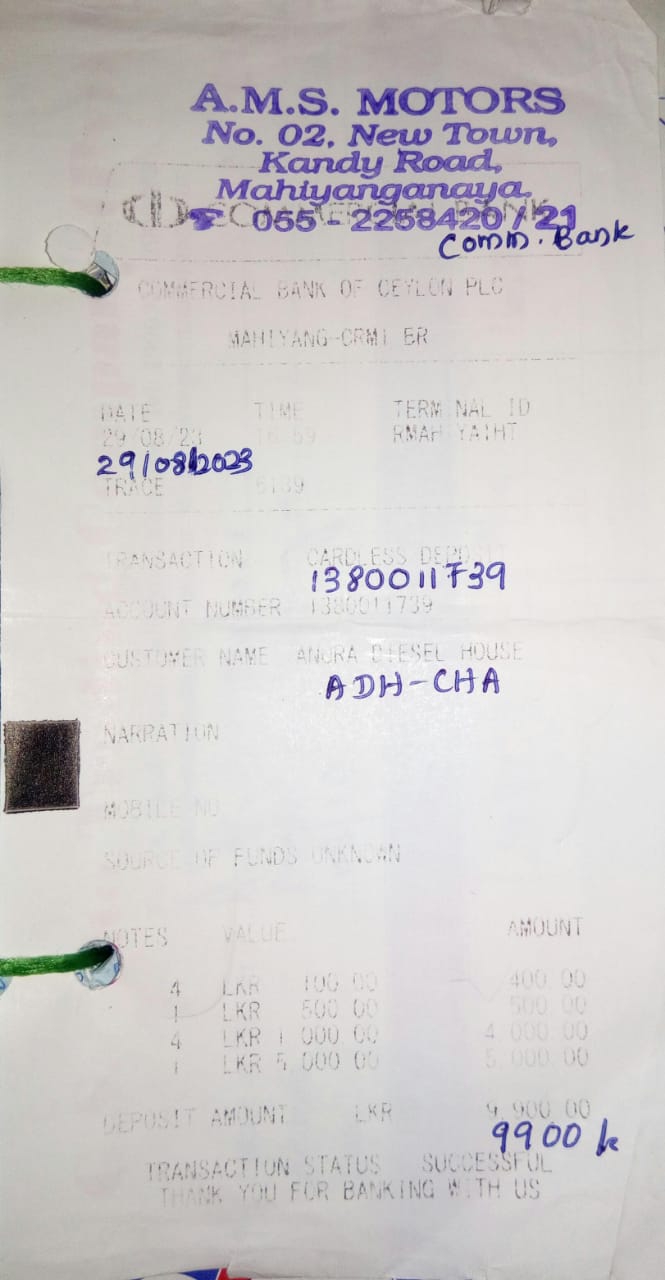 A.M.S. MOTORS
No. 02, New Town,
Kandy Road,
Mahiyanganaya.
COMMERCIAL BANK
☎ 055 - 2258420 / 21
Comm. Bank
COMMERCIAL BANK OF CEYLON PLC
MAHIYANG-CRM1 BR
DATE TIME TERMINAL ID
29/08/23 16:59
29/08/2023
TRACE 6189
TRANSACTION CARDLESS DEPOSIT
1380011739
ACCOUNT NUMBER 1380011739
CUSTOMER NAME ANURA DIESEL HOUSE
ADH-CHA
NARRATION
MOBILE NO
SOURCE OF FUNDS UNKNOWN
NOTES VALUE AMOUNT
4 LKR 100.00 400.00
1 LKR 500.00 500.00
4 LKR 1,000.00 4,000.00
1 LKR 5,000.00 5,000.00
DEPOSIT AMOUNT LKR 9,900.00
9900
TRANSACTION STATUS SUCCESSFUL
THANK YOU FOR BANKING WITH US